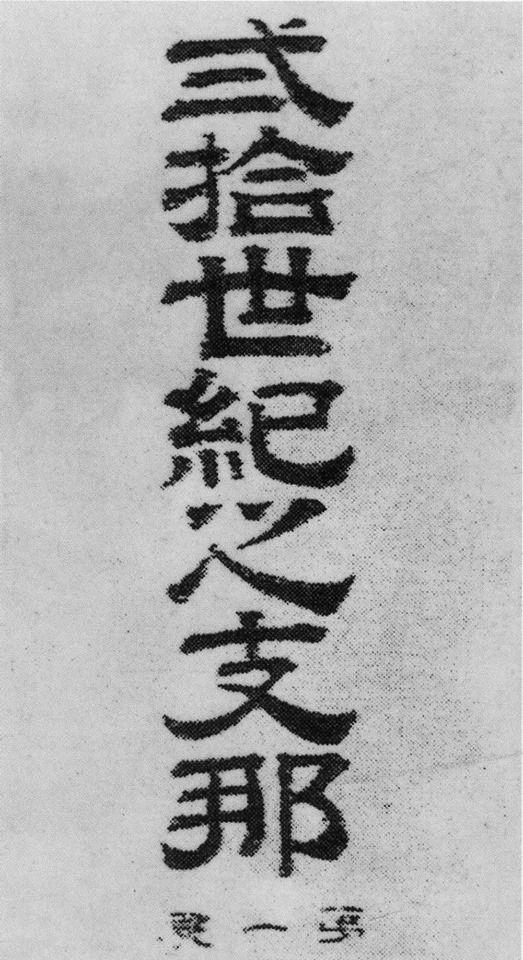 弎拾世紀之支那
第一號